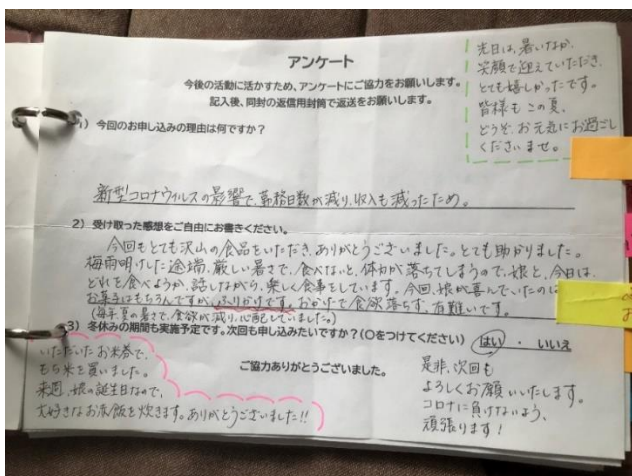 アンケート
今後の活動に活かすため、アンケートにご協力をお願いします。
記入後、同封の返信用封筒で返送をお願いします。
先日は、暑いなか、
笑顔で迎えていただき、
とても嬉しかったです。
皆様もこの夏、
どうぞ、お元気にお過ごし
くださいませ。
1）今回のお申し込みの理由は何ですか？
新型コロナウィルスの影響で、勤務日数が減り、収入も減ったため。
2）受け取った感想をご自由にお書きください。
今回もとても沢山の食品をいただき、ありがとうございました。とても助かりました。
梅雨明けした途端、厳しい暑さで、食べないと、体力が落ちてしまうので、娘と、今日は、
どれを食べようか、話しながら、楽しく食事をしています。今回、娘が喜んでいたのは
お菓子はもちろんですが、ふりかけです。おかげで食欲落ちず、有難いです。
(毎年、夏の暑さで、食欲が減り、心配していました。)
3）冬休みの期間も実施予定です。次回も申し込みたいですか？（○をつけてください） はい ・ いいえ
いただいたお米券で、
もち米を買いました。
来週、娘の誕生日なので、
大好きなお赤飯を炊きます。ありがとうございました!!
ご協力ありがとうございました。
是非、次回も
よろしくお願いいたします。
コロナに負けないよう、
頑張ります！